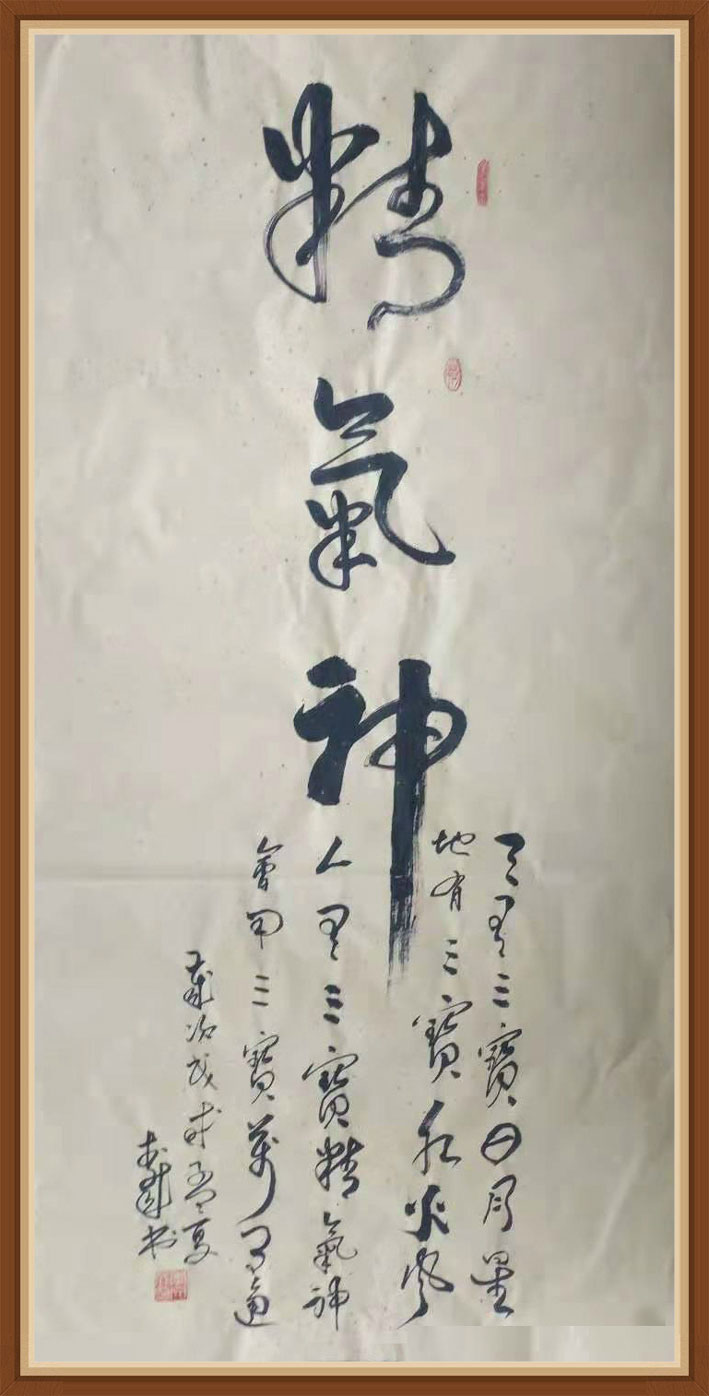 精氣神
天有三寶日月星
地有三寶水火風
人有三寶精氣神
會用三寶萬
歲次戊戌孟夏
书